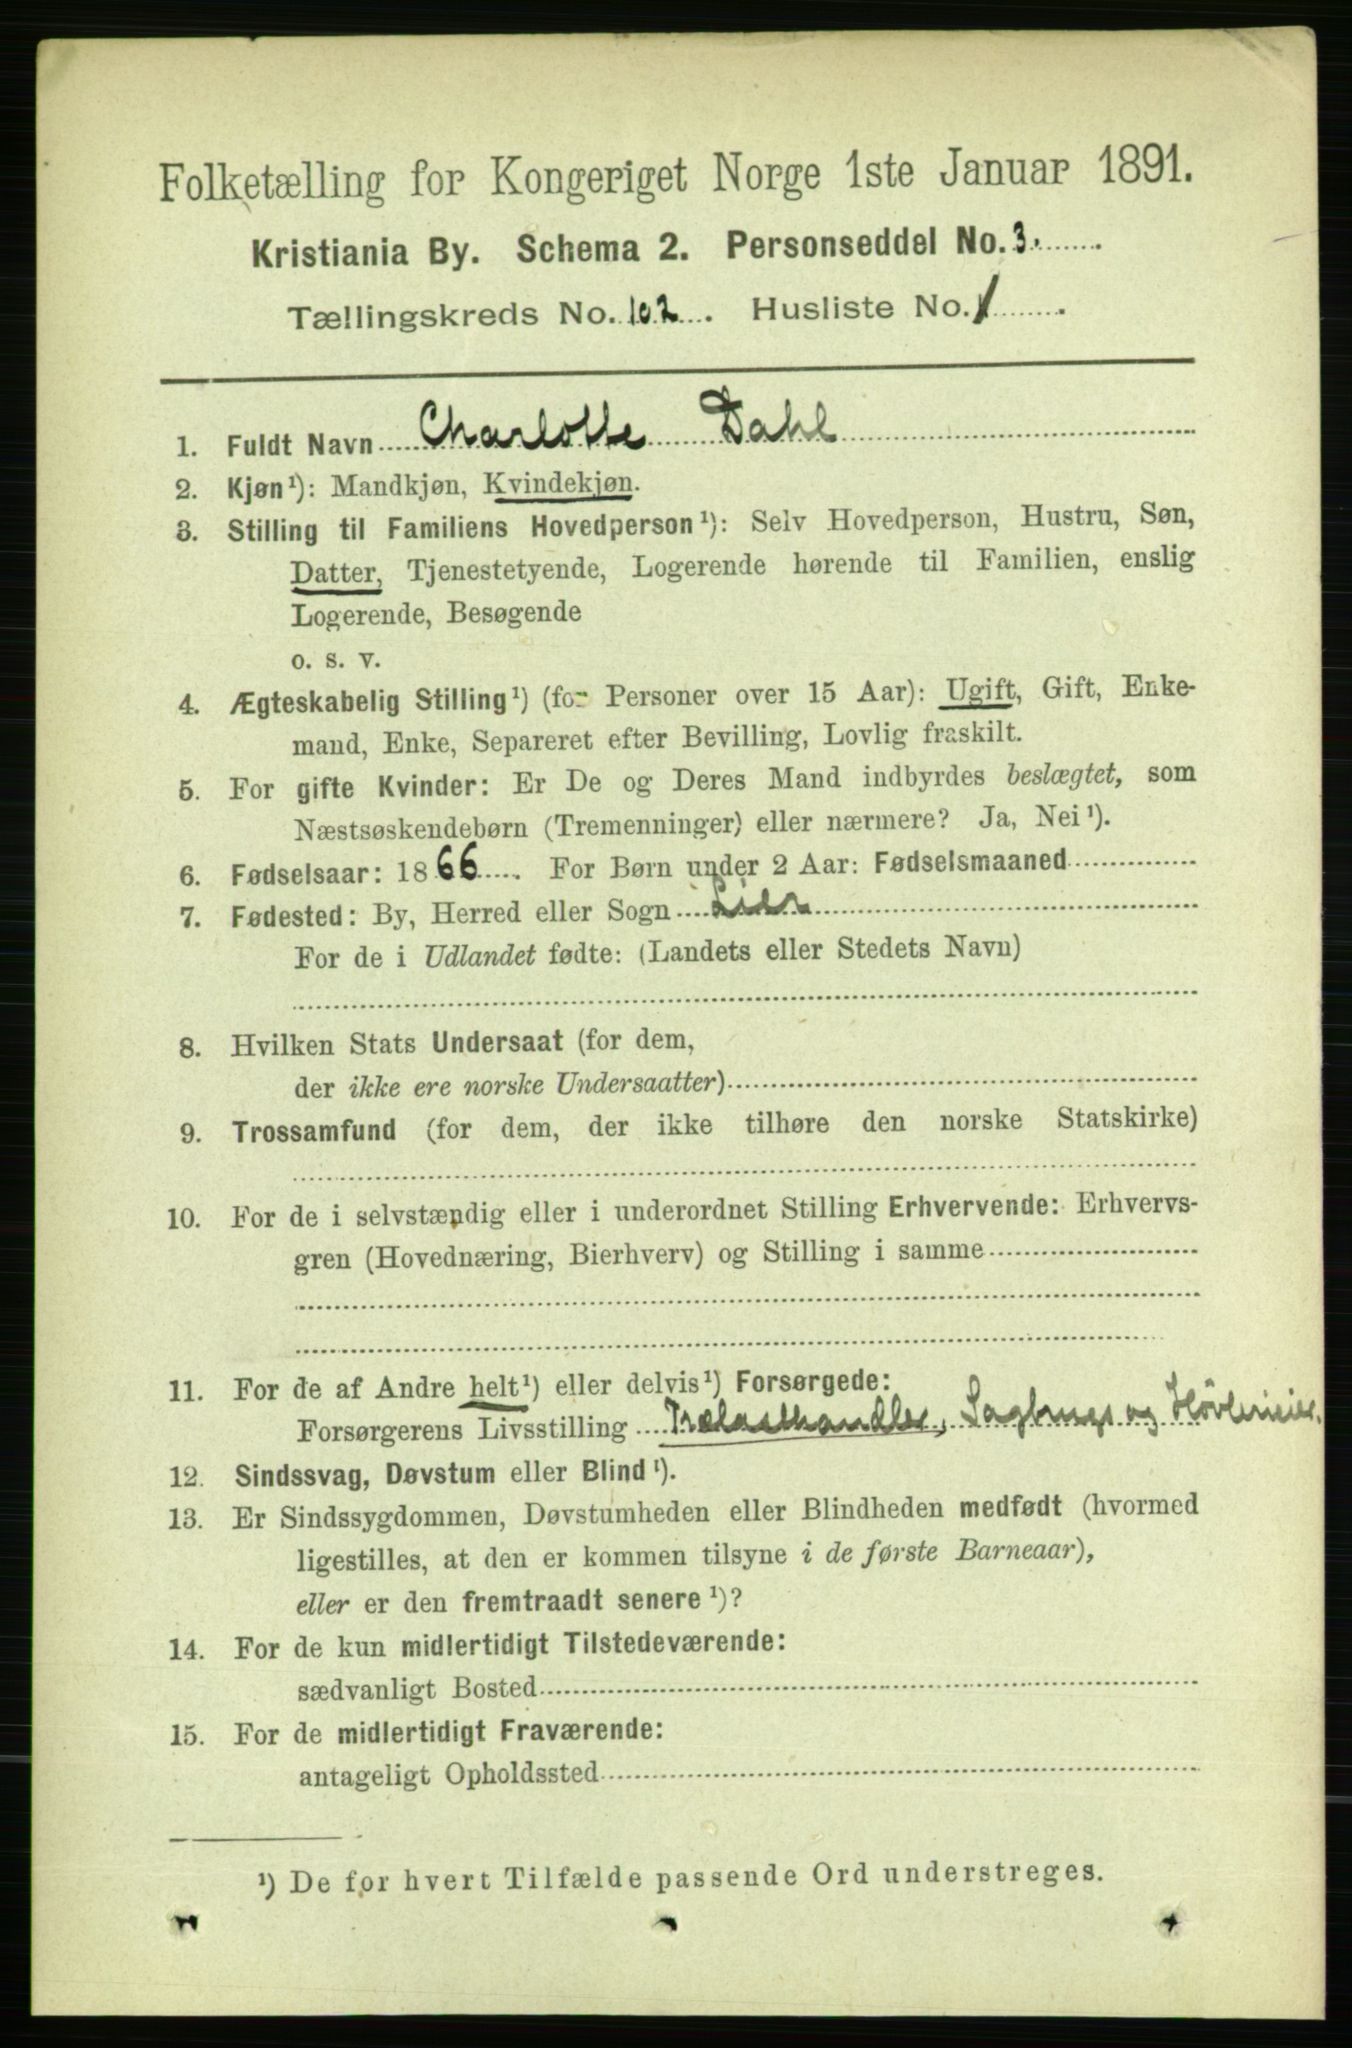 Folketælling for Kongeriget Norge 1ste Januar 1891.
Kristiania By. Schema 2. Personseddel No. 3.
Tællingskreds No. 102. Husliste No. 1.
1. Fuldt Navn Charlotte Dahl
2. Kjøn¹): Mandkjøn, Kvindekjøn.
3. Stilling til Familiens Hovedperson¹): Selv Hovedperson, Hustru, Søn,
Datter, Tjenestetyende, Logerende hørende til Familien, enslig
Logerende, Besøgende
o. s. v.
4. Ægteskabelig Stilling¹) (for Personer over 15 Aar): Ugift, Gift, Enke-
mand, Enke, Separeret efter Bevilling, Lovlig fraskilt.
5. For gifte Kvinder: Er De og Deres Mand indbyrdes beslægtet, som
Næstsøskendebørn (Tremenninger) eller nærmere? Ja, Nei¹).
6. Fødselsaar: 1866. For Børn under 2 Aar: Fødselsmaaned
7. Fødested: By, Herred eller Sogn Lier
For de i Udlandet fødte: (Landets eller Stedets Navn)
8. Hvilken Stats Undersaat (for dem,
der ikke ere norske Undersaatter)
9. Trossamfund (for dem, der ikke tilhøre den norske Statskirke)
10. For de i selvstændig eller i underordnet Stilling Erhvervende: Erhvervs-
gren (Hovednæring, Bierhverv) og Stilling i samme
11. For de af Andre helt¹) eller delvis¹) Forsørgede:
Forsørgerens Livsstilling Trælasthandler, Sagbrugs og Høvlerieier.
12. Sindssvag, Døvstum eller Blind¹).
13. Er Sindssygdommen, Døvstumheden eller Blindheden medfødt (hvormed
ligestilles, at den er kommen tilsyne i de første Barneaar),
eller er den fremtraadt senere¹)?
14. For de kun midlertidigt Tilstedeværende:
sædvanligt Bosted
15. For de midlertidigt Fraværende:
antageligt Opholdssted
¹) De for hvert Tilfælde passende Ord understreges.